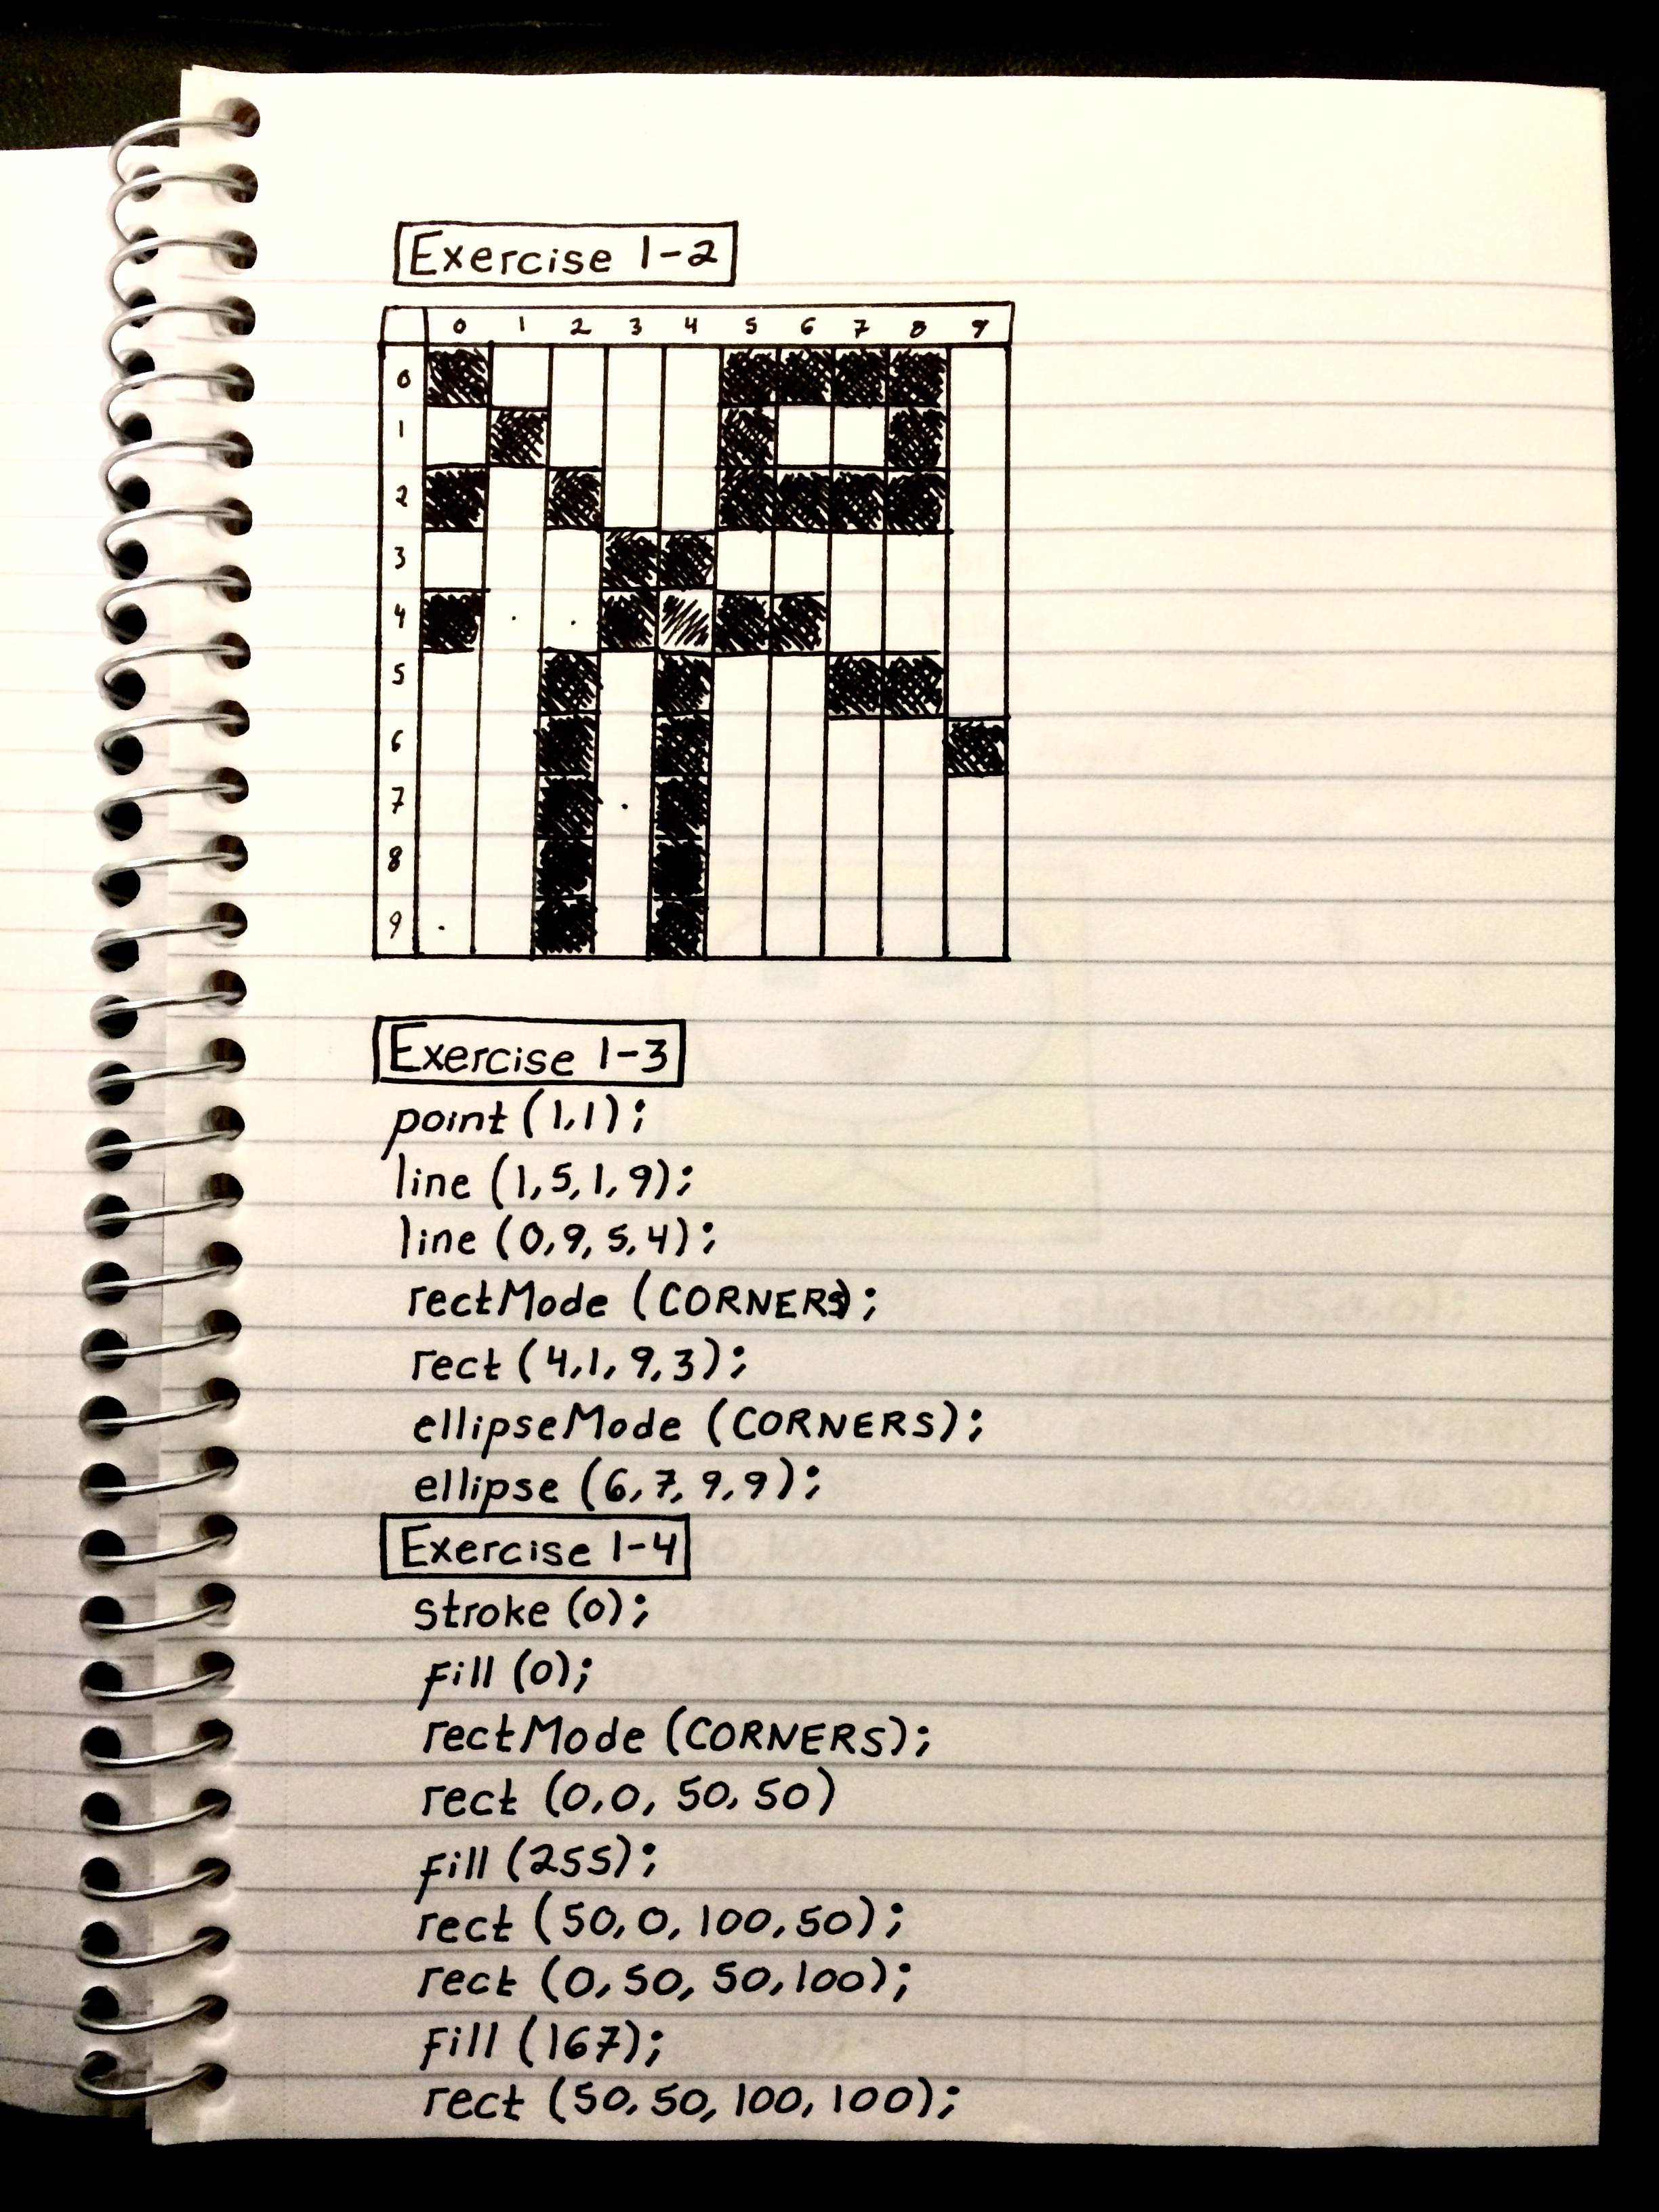 Exercise 1-2
0 1 2 3 4 5 6 7 8 9
0
1
2
3
4
5
6
7
8
9
Exercise 1-3
point (1,1);
line (1,5,1,9);
line (0,9,5,4);
rectMode (CORNERS);
rect (4,1,9,3);
ellipseMode (CORNERS);
ellipse (6,7,9,9);
Exercise 1-4
stroke (0);
fill (0);
rectMode (CORNERS);
rect (0,0, 50, 50)
fill (255);
rect (50,0,100,50);
rect (0,50,50,100);
fill (167);
rect (50,50,100,100);